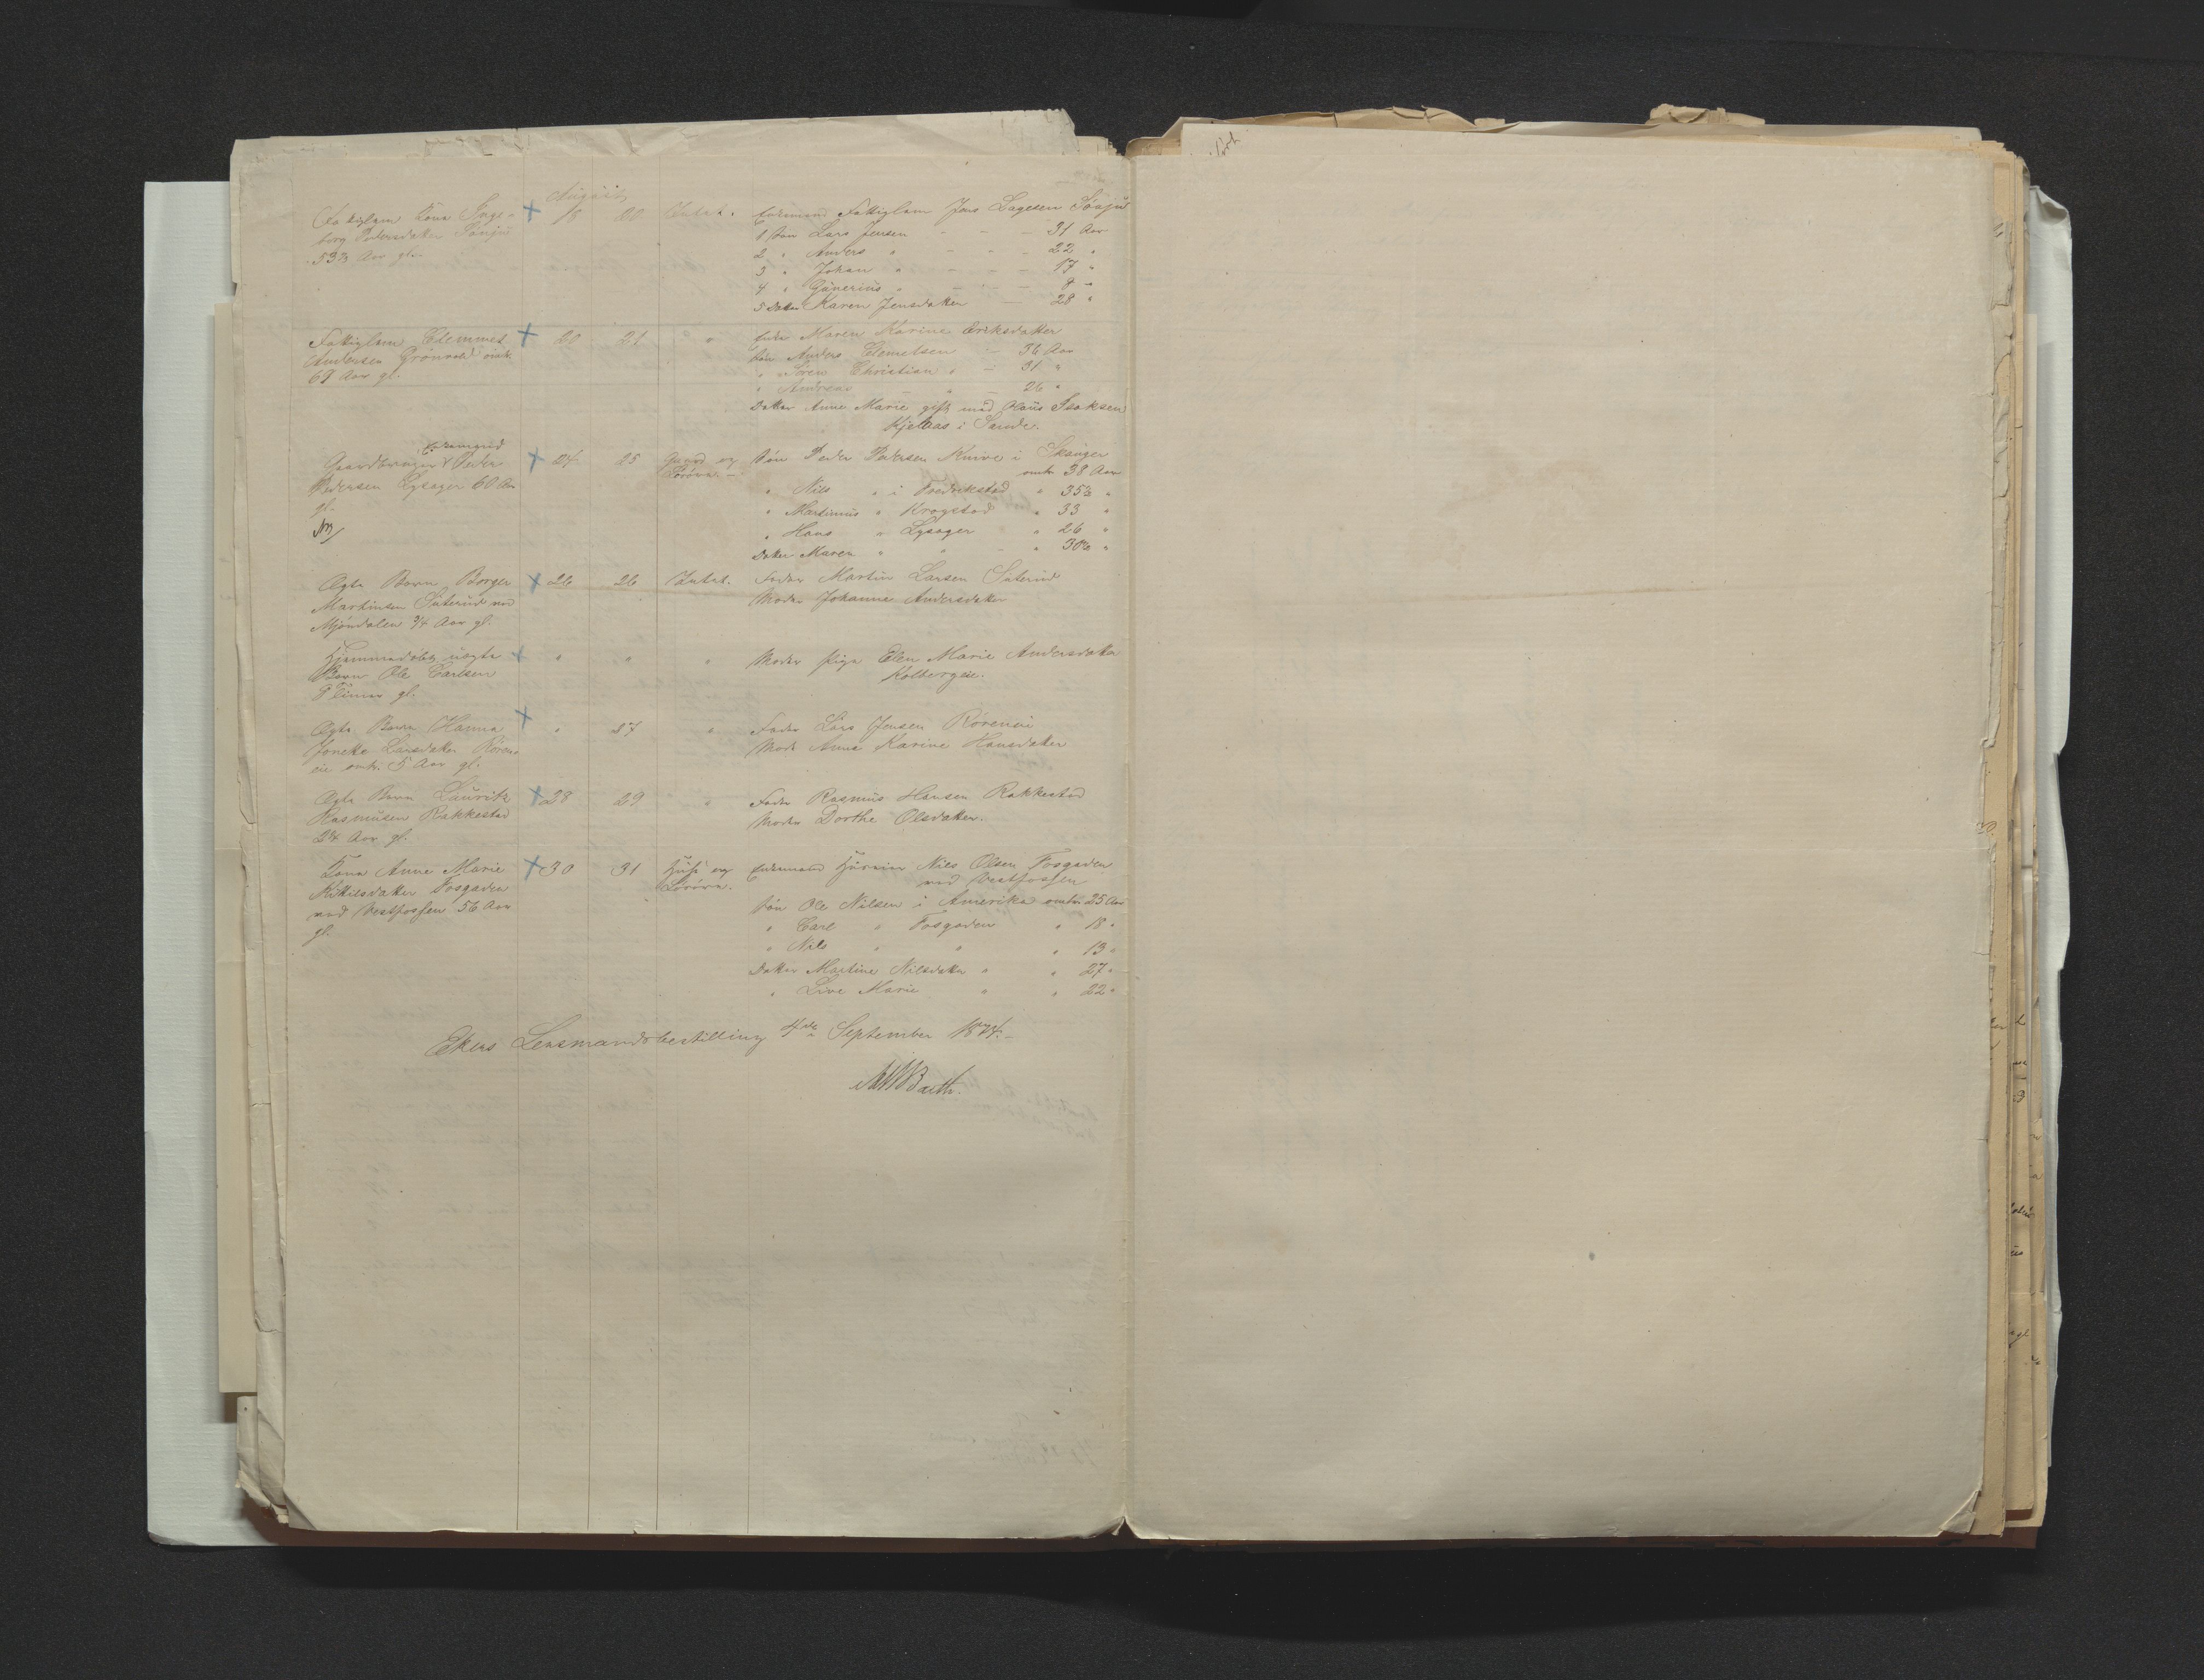 August
Fattiglem Kone Inge-
borg Pedersdatter Sønju
53⅔ Aar gl.
18 20 Intet.
Enkemand Fattiglem Jens Lagesen Sønju
1 Søn Lars Jensen - - - 31 Aar
2 " Anders " - - - 22 "
3 " Johan " - - - 17 "
4 " Gunerius " - - - 8 "
5 Datter Karen Jensdatter - 28 "
Fattiglem Clemmet
Andersen Grønvold omtr.
69 Aar gl.
20 21 " "
Enke Maren Karine Eriksdatter
Søn Anders Clemetsen - 36 Aar
" Søren Christian " - 31 "
" Andreas " - 26 "
Datter Anne Marie gift med Olaus Isaksen
Kjelaas i Sande.
Enkemand
Gaardbruger Peder
Pedersen Lysager 60 Aar
gl.
24 25 Gaard og
Løsøre. -
Søn Peder Pedersen Knive i Skouger
omtr 38 Aar
" Nils " i Fredrikstad " 35½ "
" Martinius " Krogstad " 33 "
" Hans " Lysager " 26 "
Datter Maren " " - " 30½ "
Ægte Barn Borger
Martinsen Suterud ved
Mjøndalen ¾ Aar gl.
26 26 Intet.
Fader Martin Larsen Suterud
Moder Johanne Andersdatter
Hjemmedøbt uægte
Barn Ole Carlsen
9 Timer gl.
" " "
Moder Pige Elen Marie Andersdatter
Kolbergeie.
Ægte Barn Hanna
Joneke Larsdatter Røren-
eie omtr. 5 Aar gl.
" 27 "
Fader Lars Jensen Røreneie
Moder Anne Karine Hansdatter
Ægte Barn Lauritz
Rasmusen Rakkestad
2¼ Aar gl.
28 29 "
Fader Rasmus Hansen Rakkestad
Moder Dorthe Olsdatter.
Kone Anne Marie
Kittilsdatter Fosgaden
ved Vestfossen 56 Aar
gl.
30 31 Huse og
Løsøre.
Enkemand Huseier Nils Olsen Fosgaden
ved Vestfossen
Søn Ole Nilsen i Amerika omtr. 25 Aar
" Carl " Fosgaden " 18 "
" Nils " " " 13 "
Datter Martine Nilsdatter " " 27 "
" Live Marie " " 22 "
Ekers Lensmandsbestilling 4de September 1874.